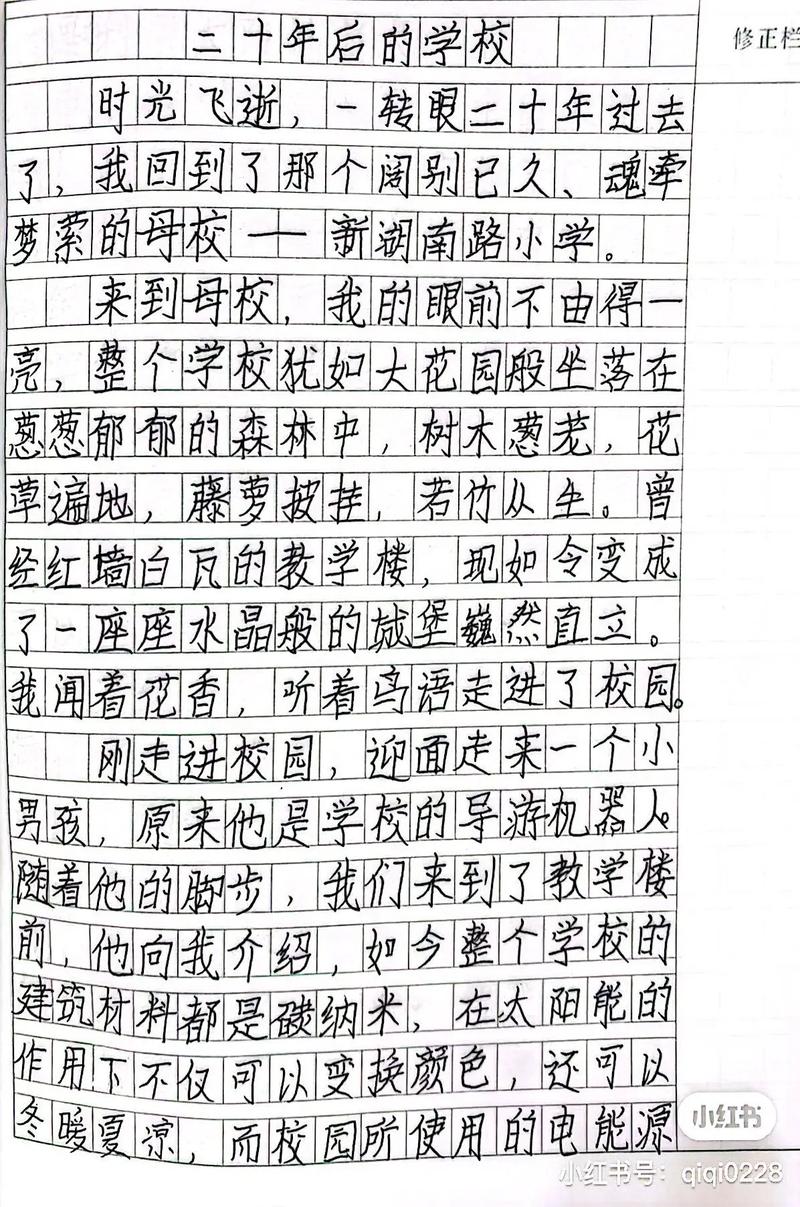 二十年后的学校
修正栏
时光飞逝，一转眼二十年过去
了，我回到了那个阔别已久、魂牵
梦萦的母校——新湖南路小学。
来到母校，我的眼前不由得一
亮，整个学校犹如大花园般坐落在
葱葱郁郁的森林中，树木葱茏，花
草遍地，藤萝披挂，若竹丛生。曾
经红墙白瓦的教学楼，现如今变成
了一座座水晶般的城堡巍然直立。
我闻着花香，听着鸟语走进了校园。
刚走进校园，迎面走来一个小
男孩，原来他是学校的导游机器人。
随着他的脚步，我们来到了教学楼
前，他向我介绍，如今整个学校的
建筑材料都是碳纳米，在太阳能的
作用下不仅可以变换颜色，还可以
冬暖夏凉，而校园所使用的电能源
小红书
小红书号：qiqi0228